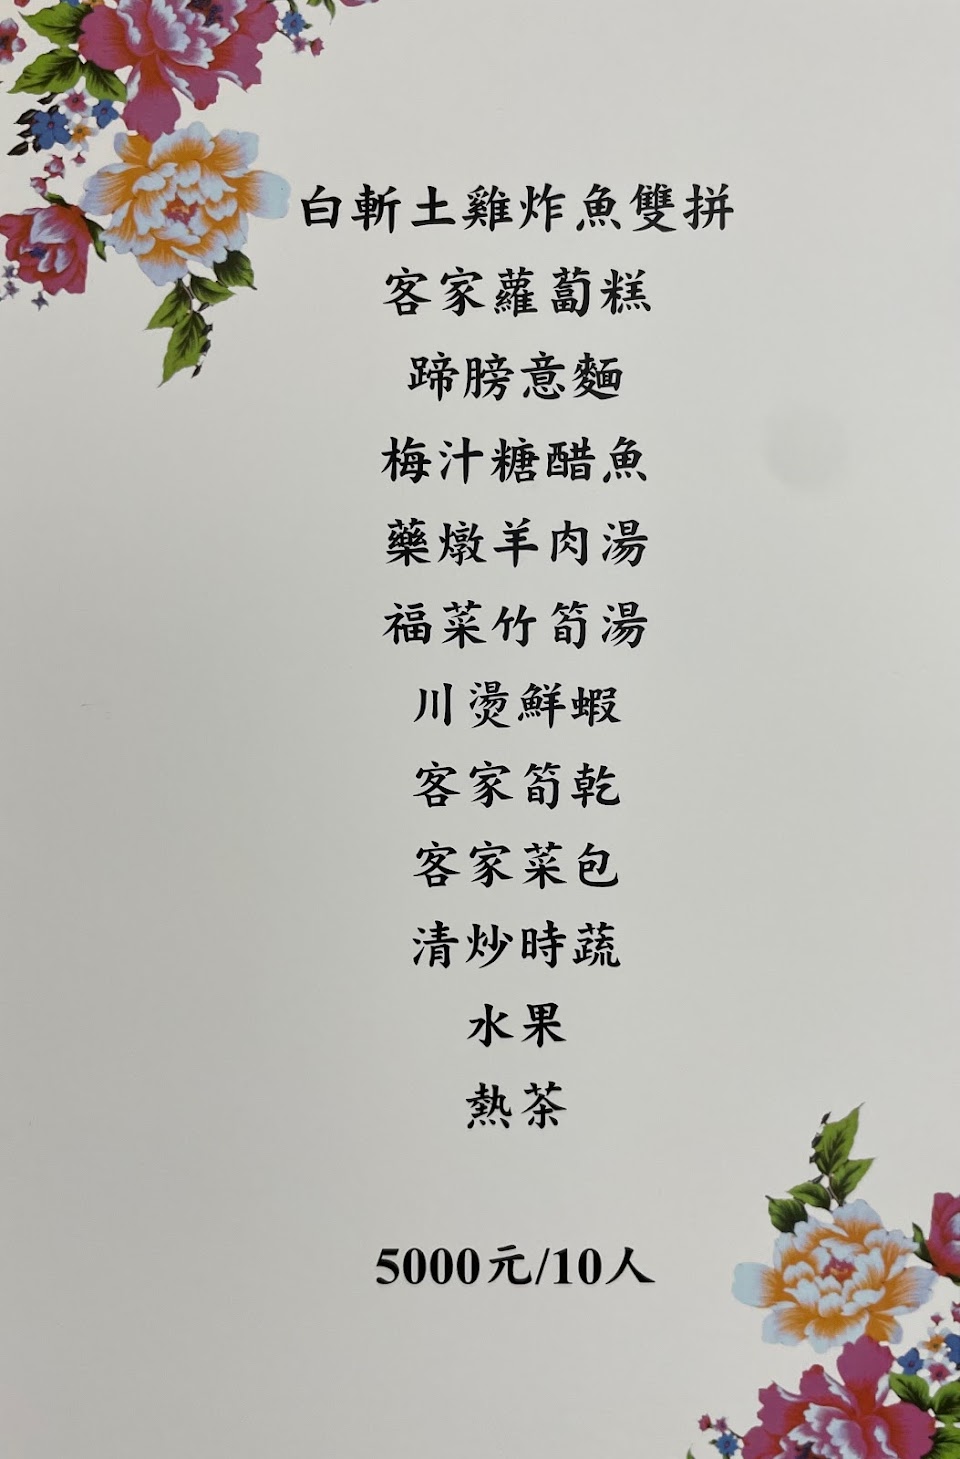 白斬土雞炸魚雙拼
客家蘿蔔糕
蹄膀意麵
梅汁糖醋魚
藥燉羊肉湯
福菜竹筍湯
川燙鮮蝦
客家筍乾
客家菜包
清炒時蔬
水果
熱茶
5000元/10人